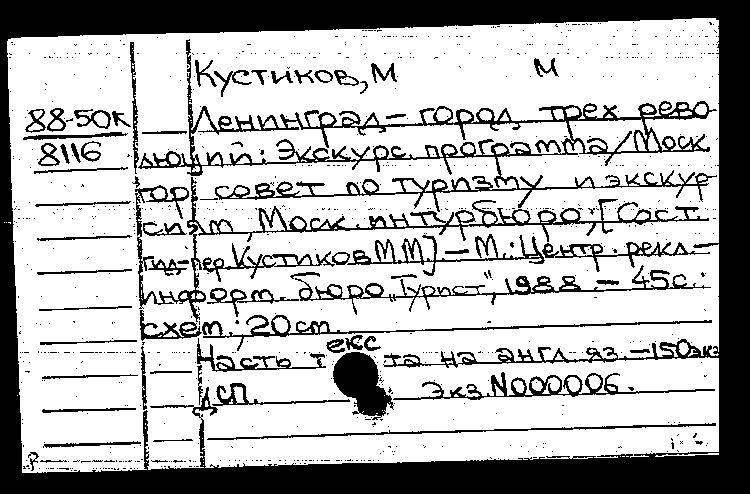 Кустиков, М М
88-50к Ленинград,- город, трех рево-
8116 люций: Экскурс. программа/Моск.
гор. совет по туризму и экскур-
сиям, Моск. интурбюро; [Сост.
гид-пер. Кустиков М.М] - М.: Центр. рекл.-
информ. бюро "Турист", 1988 - 45с.:
схем.; 20см.
Часть текста на англ яз. -150экз
ДСП. Экз.N000006.